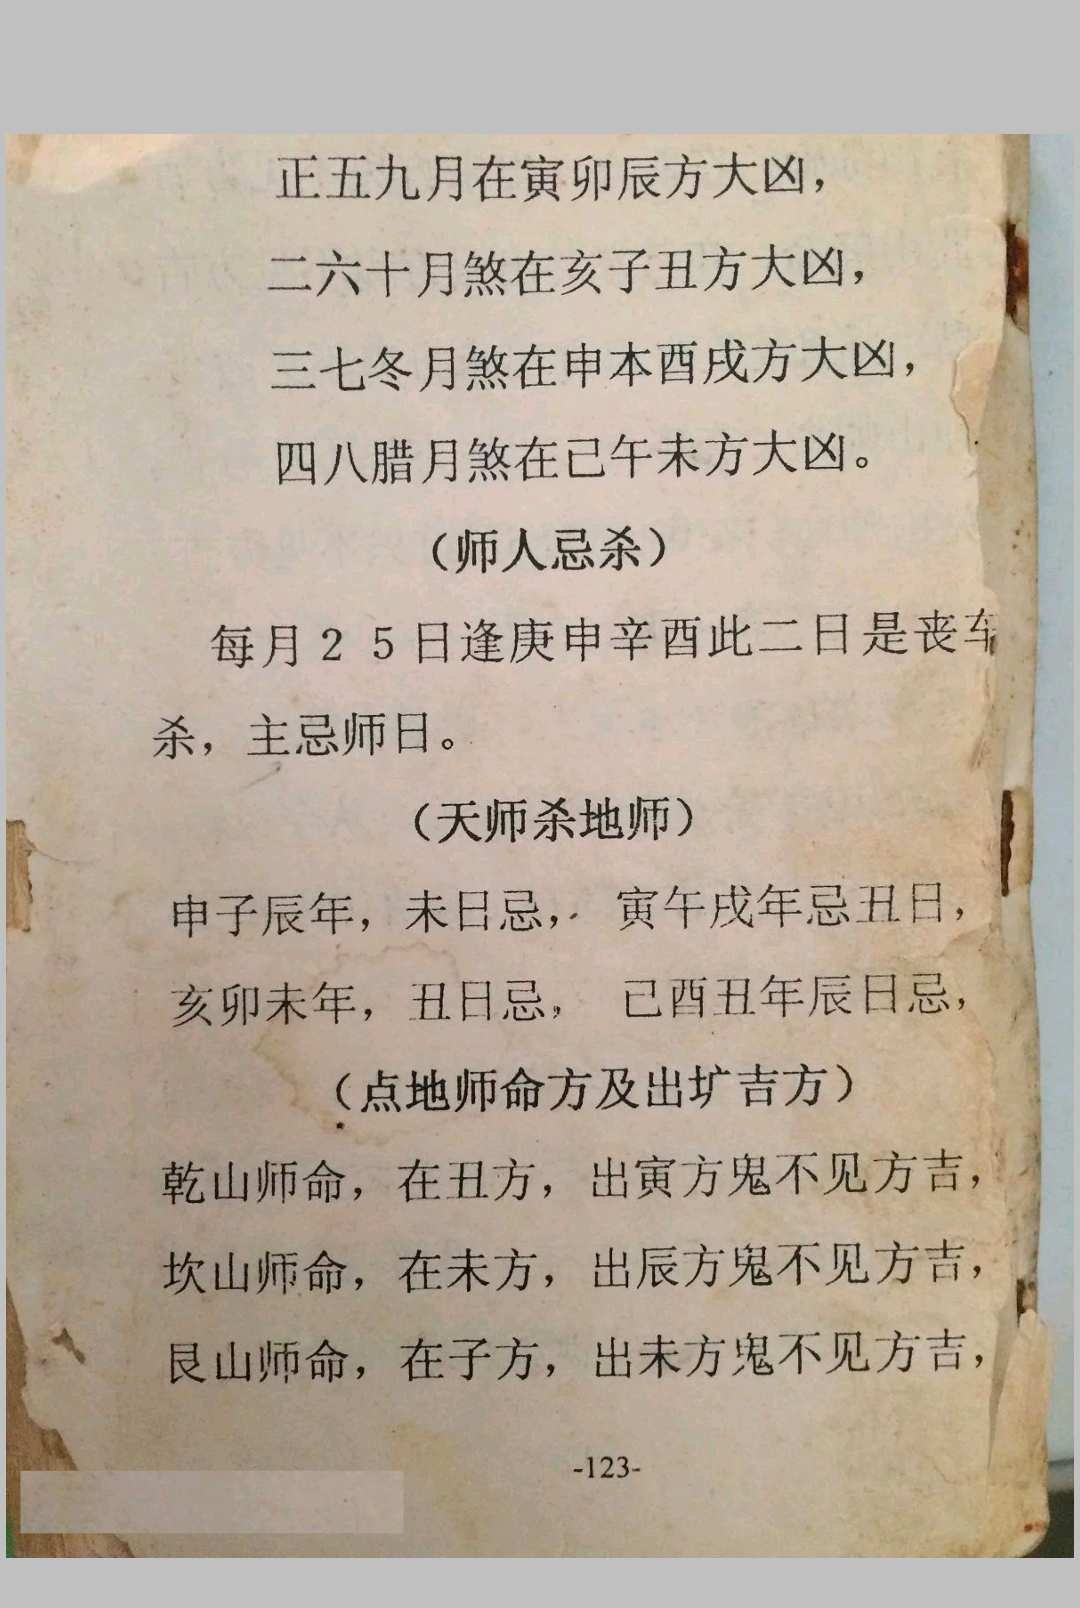 正五九月在寅卯辰方大凶，
二六十月煞在亥子丑方大凶，
三七冬月煞在申本酉戌方大凶，
四八腊月煞在己午未方大凶。
（师人忌杀）
每月25日逢庚申辛酉此二日是丧车
杀，主忌师日。
（天师杀地师）
申子辰年，未日忌， 寅午戌年忌丑日，
亥卯未年，丑日忌， 己酉丑年辰日忌，
（点地师命方及出圹吉方）
乾山师命，在丑方，出寅方鬼不见方吉，
坎山师命，在未方，出辰方鬼不见方吉，
艮山师命，在子方，出未方鬼不见方吉，
-123-